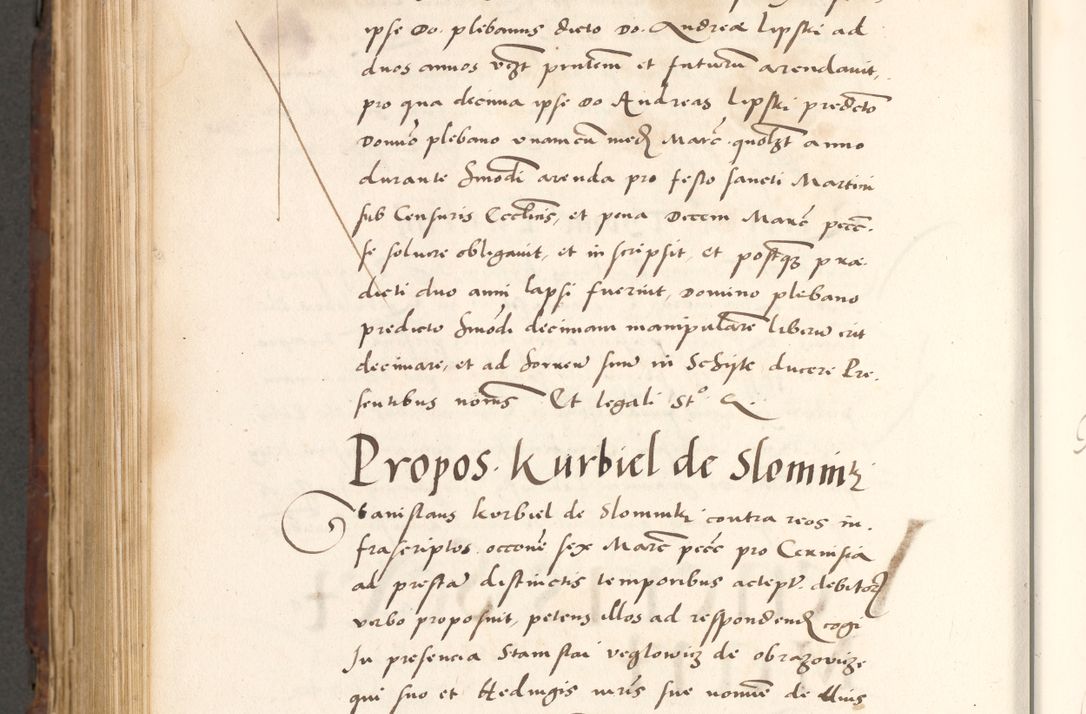 ipse do. plebanus dicto do. Andreæ Lipski ad
duos annos vczt pntem et futurū arendavit,
pro qua decima ipse do Andreas Lipski predicto
Domīo plebano unamcū med Marc quolzt anno
durante hmōdi arenda pro festo sancti Martini
sub Censuris Ecclīcis, et pena Decem Marc pecc.
se soluere obligavit, et inscripsit, et postqz præ-
dicti duo anni lapsi fuerint, Domino plebano
predicto hmōdi decimam manipularē liberū erit
decimare, et ad horreū suū in ducere Pre-
sentibus noīus Et legali St° &.
Propos. Kurbiel de Slomnik
Stanislaus Korbiel de Slomnik contra reos in-
frascriptos occoñe sex Marc pecc pro Cervisia
ad presta distinctis temporibus accept. debitorz
verbo proposuit, petens illos ad respondend cogi
In presencia Stanislai veglowicz de obrazovicze
qui suo et Hedvigis uxoris sue nomīe de eius